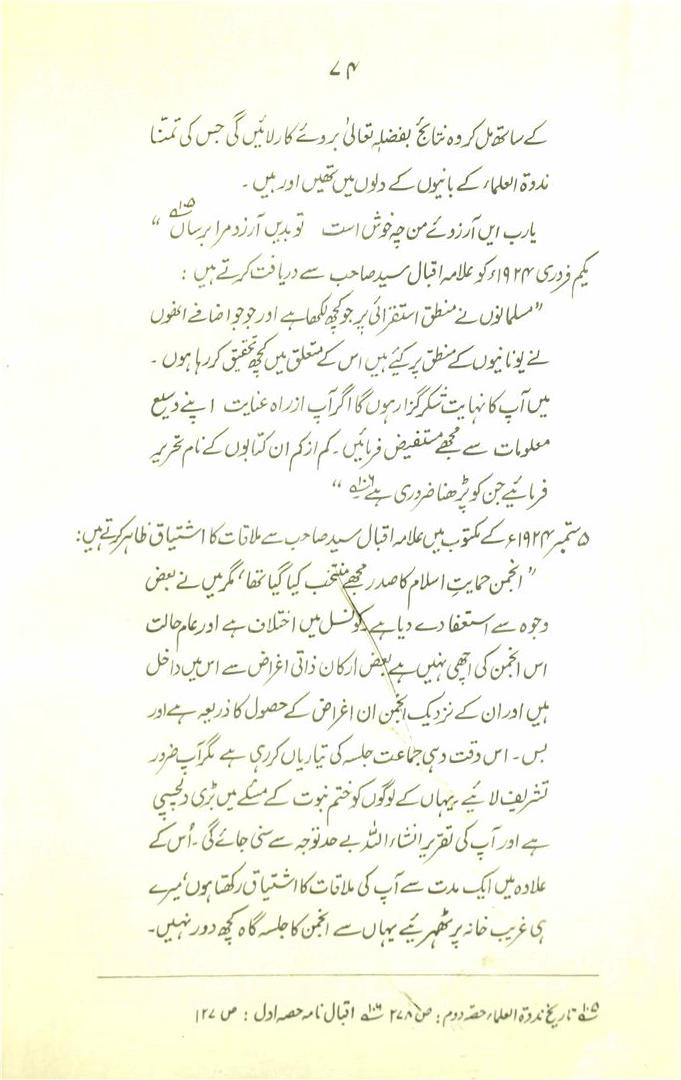 ۷۴
کے ساتھ مل کر وہ نتائج بفضلہ تعالیٰ بروئے کار لائیں گی جس کی تمنا
ندوۃ العلماء کے بانیوں کے دلوں میں تھیں اور ہیں ۔
یارب ایں آرزوئے من چہ خوش است تو بدیں آرزو مرا برساں ۱۰۵؎ “
یکم فروری ۱۹۲۴ء کو علامہ اقبال سید صاحب سے دریافت کرتے ہیں :
”مسلمانوں نے منطق استقرائی پر جو کچھ لکھا ہے اور جو جو اضافے انھوں
نے یونانیوں کے منطق پر کیئے ہیں اس کے متعلق میں کچھ تحقیق کر رہا ہوں ۔
میں آپ کا نہایت شکر گزار ہوں گا اگر آپ از راہ عنایت اپنے وسیع
معلومات سے مجھے مستفیض فرمائیں ۔ کم از کم ان کتابوں کے نام تحریر
فرمائیے جن کو پڑھنا ضروری ہے ۱۰۶؎ “
۵ ستمبر ۱۹۲۴ء کے مکتوب میں علامہ اقبال سید صاحب سے ملاقات کا اشتیاق ظاہر کرتے ہیں :
” انجمن حمایتِ اسلام کا صدر مجھے منتخب کیا گیا تھا ، مگر میں نے بعض
وجوہ سے استعفا دے دیا ہے کونسل میں اختلاف ہے اور عام حالت
اس انجمن کی اچھی نہیں ہے بعض ارکان ذاتی اغراض سے اس میں داخل
ہیں اور ان کے نزدیک انجمن ان اغراض کے حصول کا ذریعہ ہے اور
بس ۔ اس وقت وہی جماعت جلسہ کی تیاریاں کر رہی ہے مگر آپ ضرور
تشریف لائیے یہاں کے لوگوں کو ختم نبوت کے مسئلے میں بڑی دلچسپی
ہے اور آپ کی تقریر انشاء اللہ بے حد توجہ سے سنی جائے گی ۔ اُس کے
علاوہ میں ایک مدت سے آپ کی ملاقات کا اشتیاق رکھتا ہوں ، میرے
ہی غریب خانہ پر ٹھہریئے یہاں سے انجمن کا جلسہ گاہ کچھ دور نہیں ۔
۱۰۵؎ تاریخ ندوۃ العلماء حصہ دوم : ص ۲۷۸ ۱۰۶؎ اقبال نامہ حصہ اول : ص ۱۲۷